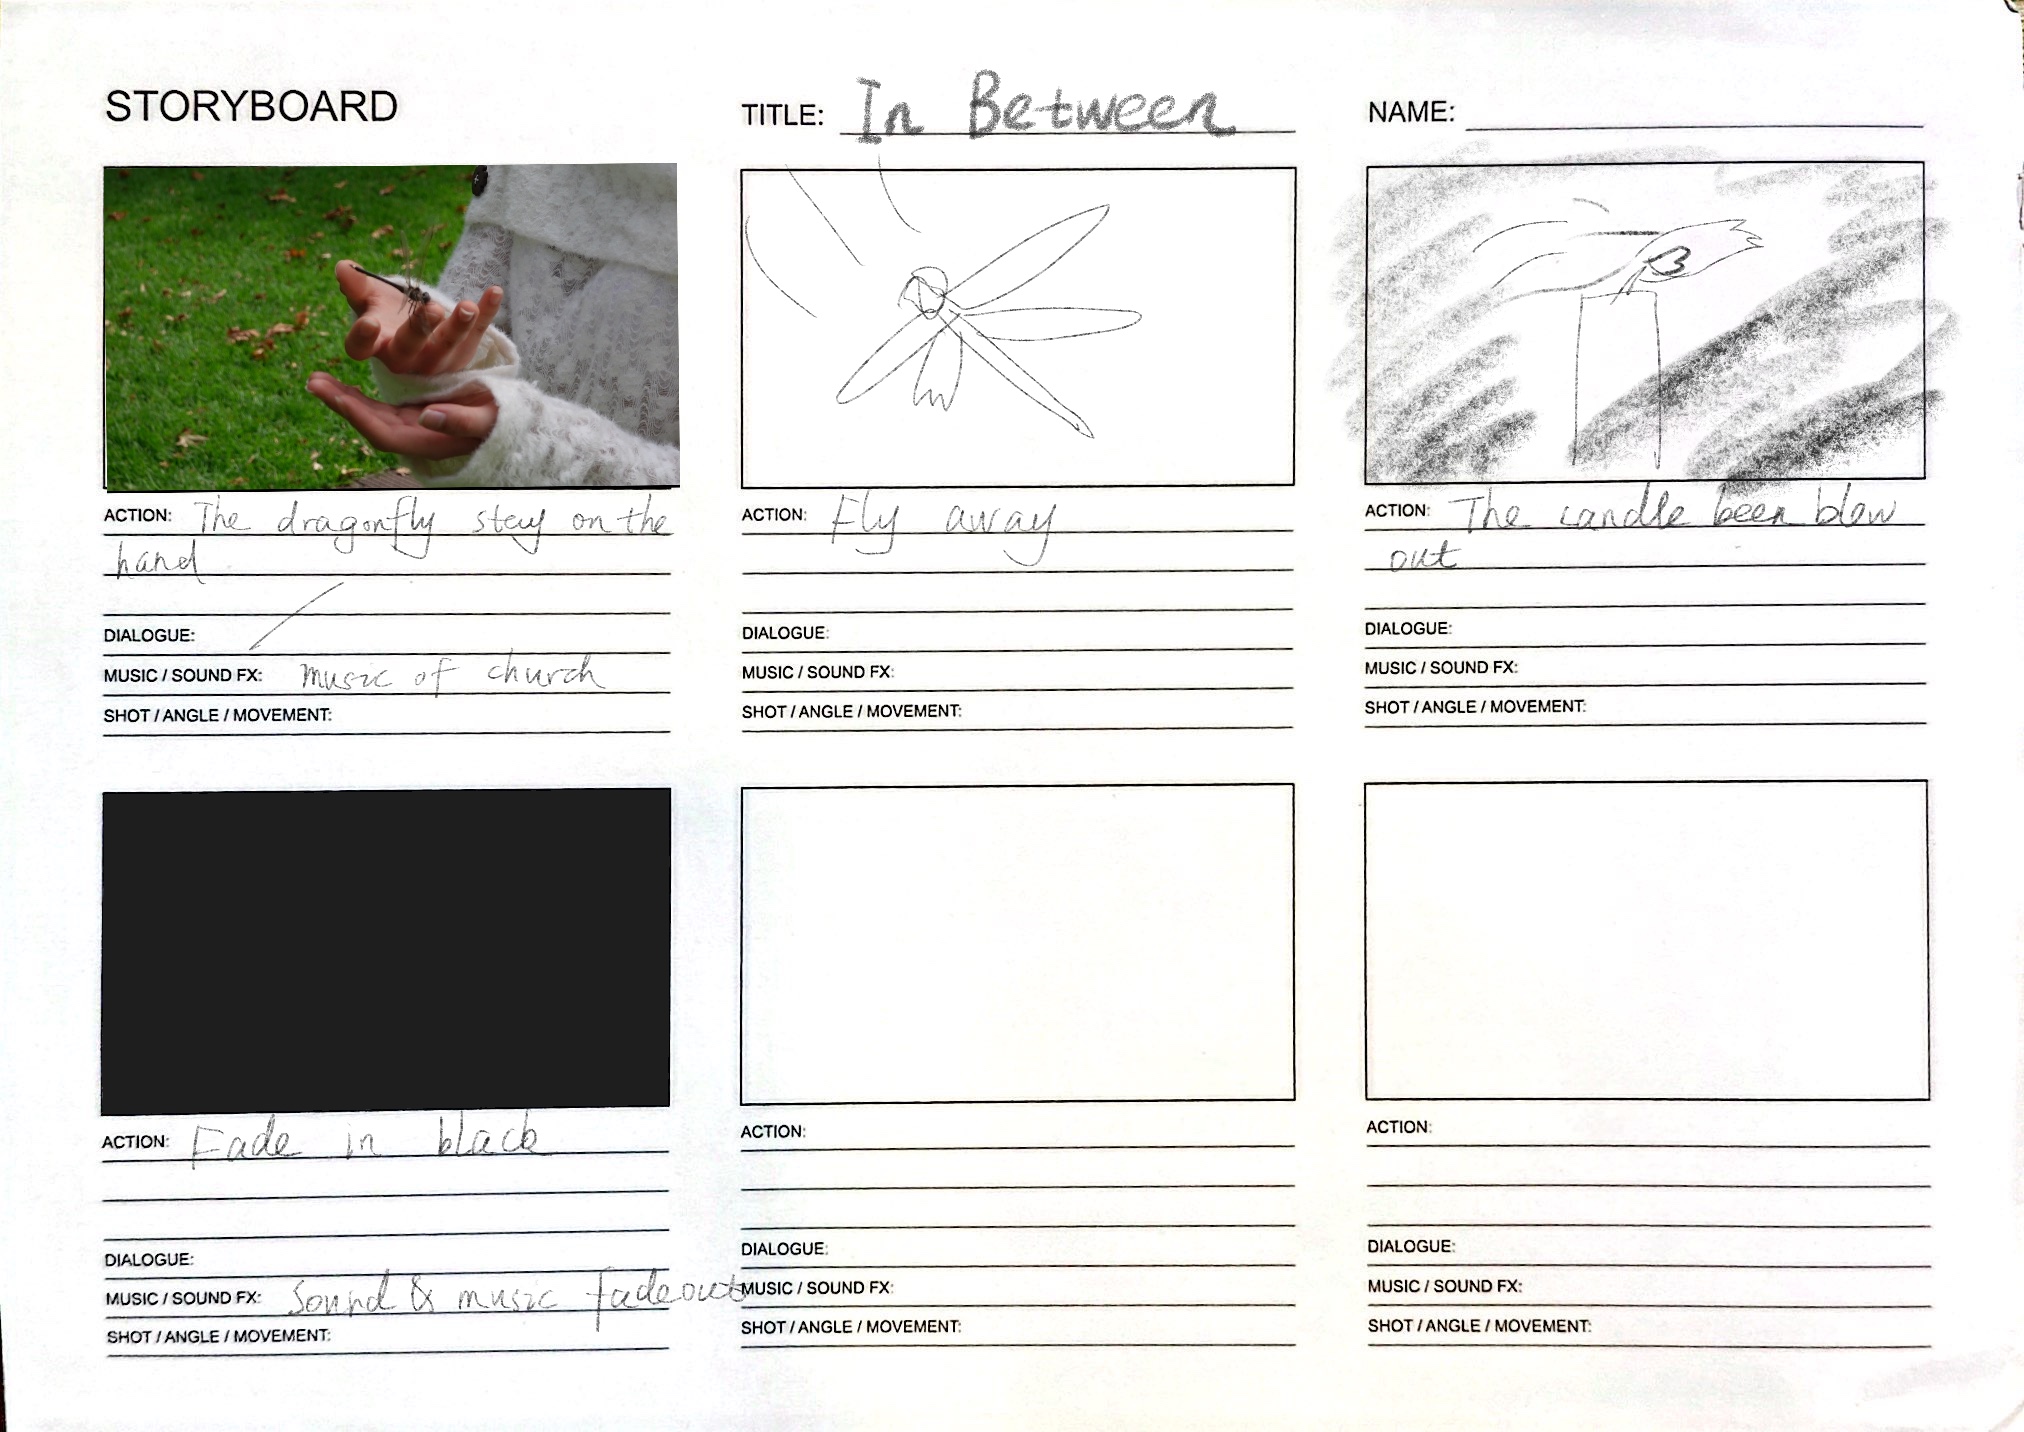 STORYBOARD
TITLE: In Between
NAME:
ACTION: The dragonfly stay on the
hand
DIALOGUE:
MUSIC / SOUND FX: music of church
SHOT / ANGLE / MOVEMENT:
ACTION: Fly away
DIALOGUE:
MUSIC / SOUND FX:
SHOT / ANGLE / MOVEMENT:
ACTION: The candle been blow
out
DIALOGUE:
MUSIC / SOUND FX:
SHOT / ANGLE / MOVEMENT:
ACTION: Fade in black
DIALOGUE:
MUSIC / SOUND FX: Sound & music fade out
SHOT / ANGLE / MOVEMENT:
ACTION:
DIALOGUE:
MUSIC / SOUND FX:
SHOT / ANGLE / MOVEMENT:
ACTION:
DIALOGUE:
MUSIC / SOUND FX:
SHOT / ANGLE / MOVEMENT: